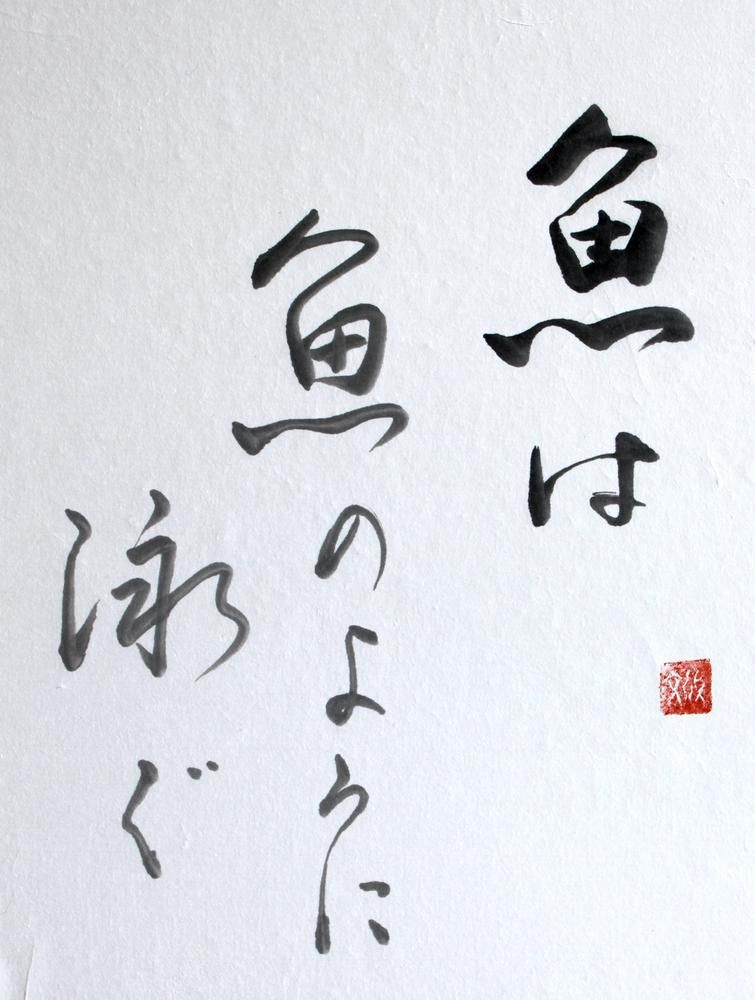 魚は
魚のように
泳ぐ